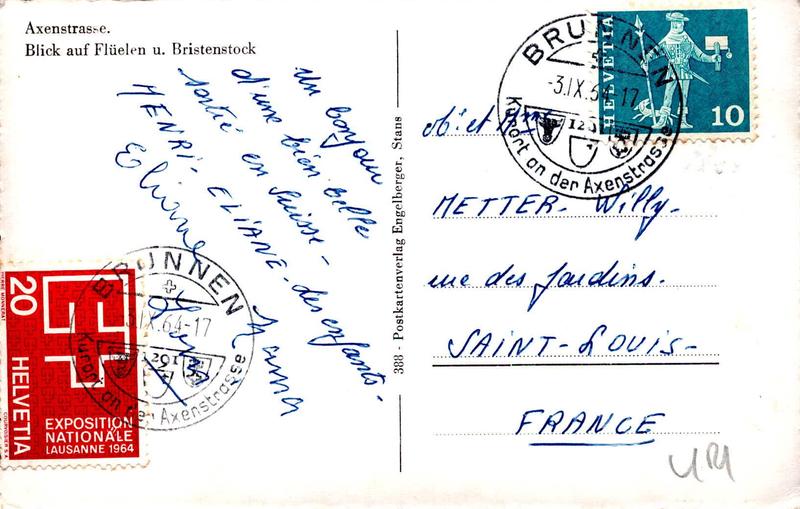 Axenstrasse.
Blick auf Flüelen u. Bristenstock
Un bonjour
d'une bien belle
sortie en Suisse -
HENRI - ELIANE - des enfants -
Eliane
388 - Postkartenverlag Engelberger, Stans
HELVETIA
10
BRUNNEN
-3.IX.64-17
1291
Kurort an der Axenstrasse
METTER - Willy -
rue des Jardins.
SAINT-LOUIS -
FRANCE
20
HELVETIA
EXPOSITION
NATIONALE
LAUSANNE 1964
PIERRE MONNERAT
COURVOISIER S.A.
BRUNNEN
-3.IX.64-17
1291
Kurort an der Axenstrasse